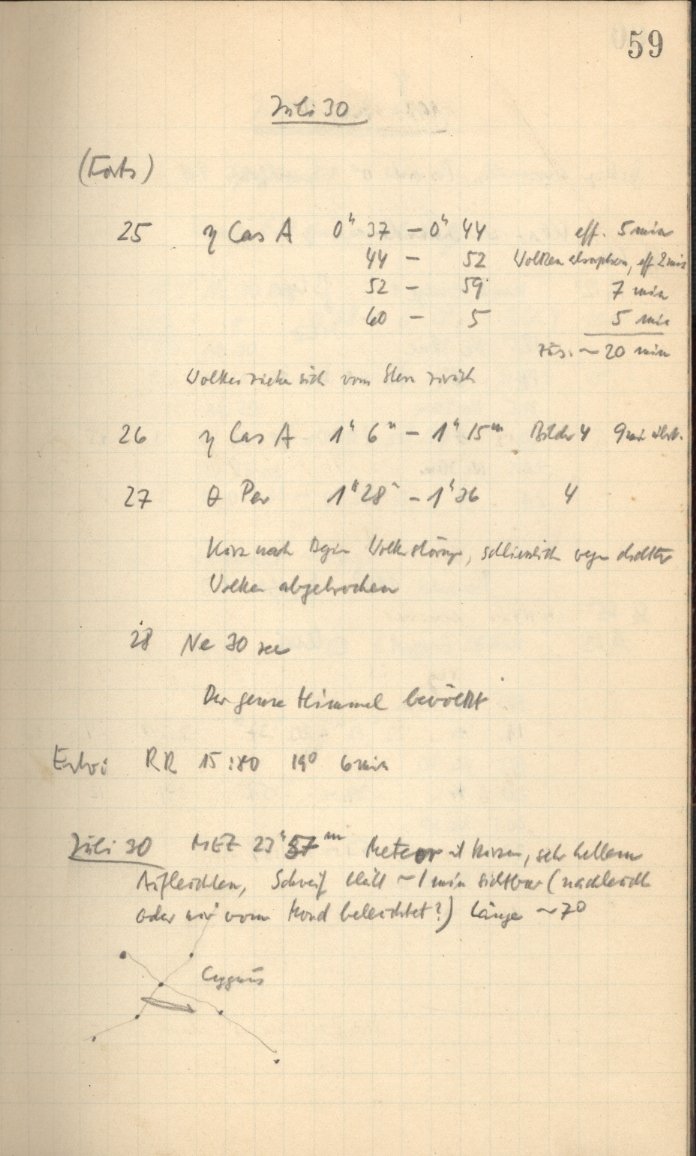 59
Juli 30
(Forts)
25 η Cas A 0h 37 – 0h 44 eff. 5 min
44 – 52 Wolken eff 2 min
52 – 59 7 min
60 – 5 5 min
zus. ~ 20 min
Wolken ziehen sich vom Stern zurück
26 η Cas A 1h 6m – 1h 15m Bilder 4 9 min
27 θ Per 1h 28 – 1h 36 4
Kurz nach Beginn Wolkenstörung, schliesslich wegen dichter
Wolken abgebrochen
28 Ne 30 sec
Der ganze Himmel bevölkt
Entw: RR 15:80 19° 6 min
Juli 30 MEZ 23h 57m Meteor mit kurzem, sehr hellem
Aufleuchten, Schweif ~ 1 min sichtbar (nachleucht
oder nur vom Mond beleuchtet?) Länge ~ 7°
Cygnus